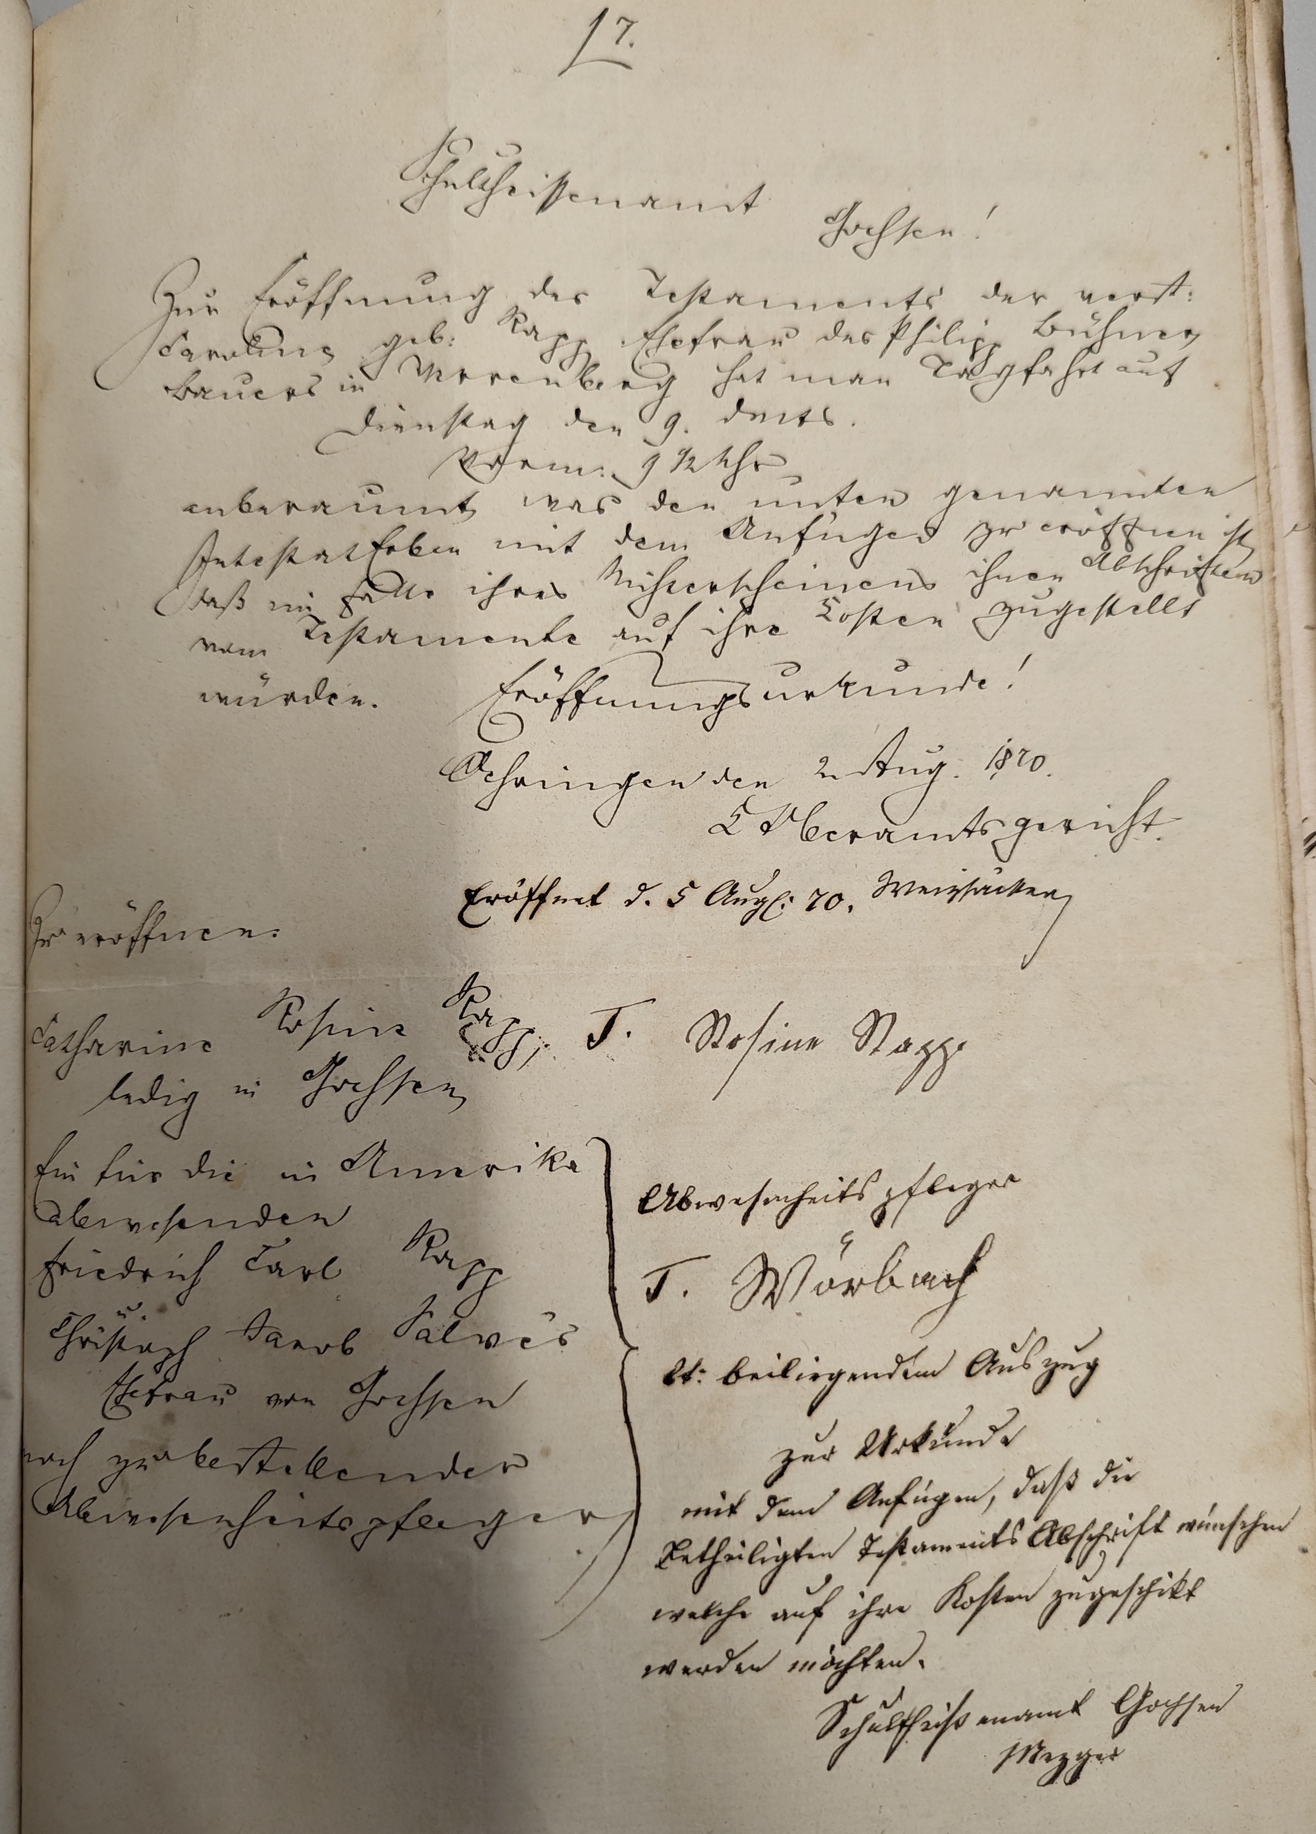 17.
Schultheissenamt
Gochsen!
Zur Eröffnung des Testaments der verst:
Caroline geb: Rapp Ehefrau des Philipp Bühner
Bauers in Morenberg hat man Tagfahrt auf
Dienstag den 9. dMts.
Vorm: 9 ½ Uhr
anberaumt, was den unten genannten
IntestatErben mit dem Anfügen zu eröffnen ist,
daß im Falle ihres Nichterscheinens ihnen Abschriften
vom Testamente auf ihre Kosten zugestellt
würden. Eröffnungsurkunde!
Oehringen den 2. Aug. 1870.
K Oberamtsgericht.
Eröffnet d. 5 Aug: 70. Weizsäcker
Zu eröffnen:
Catharine Rosine Rapp, T. Rosine Rapp
ledig in Gochsen,
für die in Amerika
abwesenden
Friedrich Carl Rapp
u.
Christoph Jacob
Ehefrau von Gochsen
noch zu bestellender
Abwesenheitspfleger
Abwesenheitspfleger
T. Wörbach
lt: beiliegendem Auszug
zur Urkunde
mit dem Anfügen, daß die
Betheiligten Testaments Abschrift wünschen
welche auf ihre Kosten zugeschikt
werden möchten.
Schultheißenamt Gochsen
Mezger